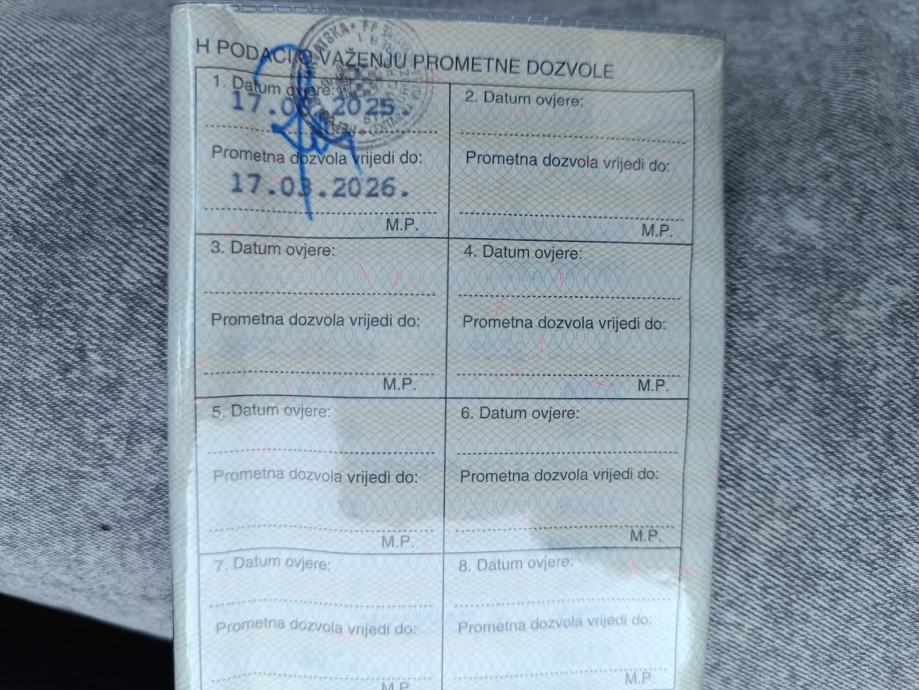 H PODACI O VAŽENJU PROMETNE DOZVOLE
1. Datum ovjere:
2025
Prometna dozvola vrijedi do:
17.03.2026.
M.P.
2. Datum ovjere:
Prometna dozvola vrijedi do:
M.P.
3. Datum ovjere:
Prometna dozvola vrijedi do:
M.P.
4. Datum ovjere:
Prometna dozvola vrijedi do:
M.P.
5. Datum ovjere:
Prometna dozvola vrijedi do:
M.P.
6. Datum ovjere:
Prometna dozvola vrijedi do:
M.P.
7. Datum ovjere:
Prometna dozvola vrijedi do:
M.P.
8. Datum ovjere:
Prometna dozvola vrijedi do:
M.P.